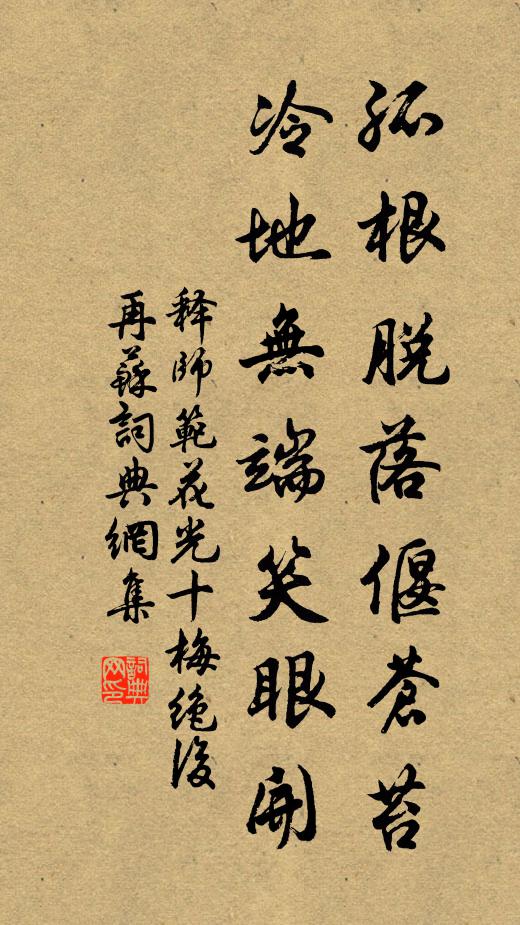 孤根脫落偃蒼苔
冷地無端笑眼開
释師範花光十梅絶後
再蘇詞典網集
詞典网印